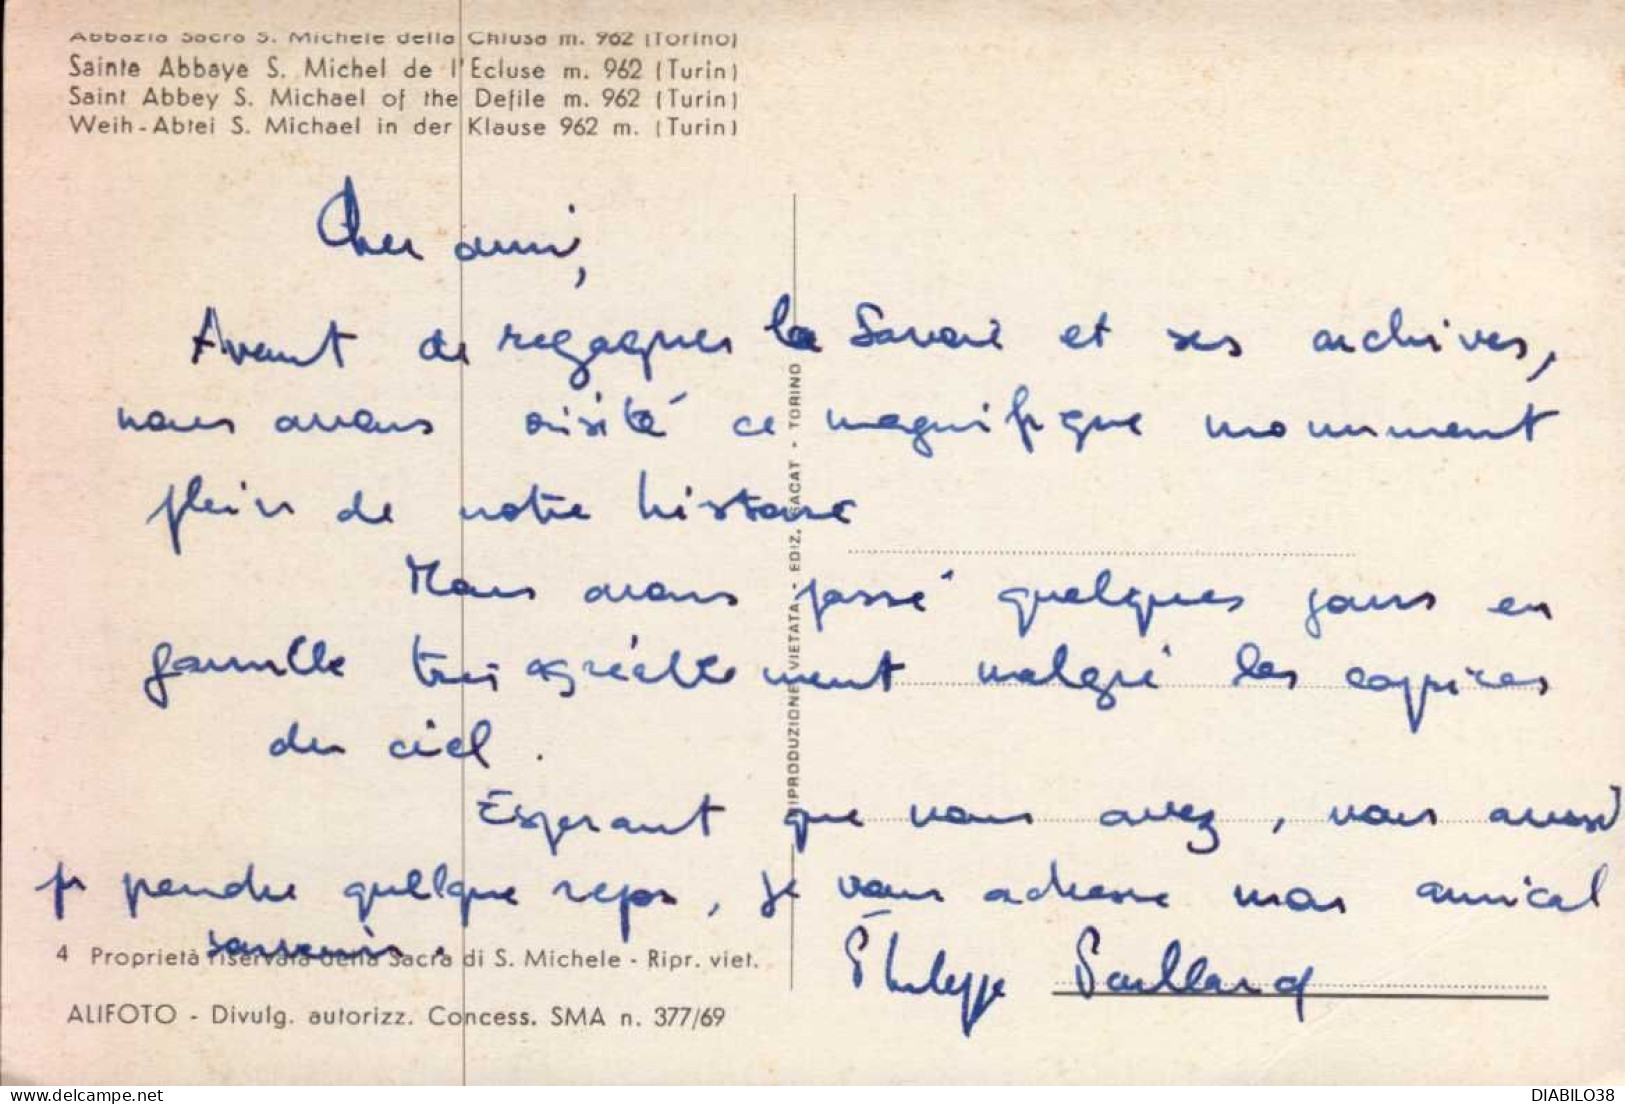 Abbazia Sacra S. Michele della Chiusa m. 962 (Torino)
Sainte Abbaye S. Michel de l'Ecluse m. 962 (Turin)
Saint Abbey S. Michael of the Defile m. 962 (Turin)
Weih-Abtei S. Michael in der Klause 962 m. (Turin)
Cher ami,
Avant de regagner la Savoie et ses archives,
nous avons visité ce magnifique monument
plein de notre histoire
Nous avons passé quelques jours en
famille très agréablement malgré les caprices
du ciel.
Esperant que vous avez, vous aussi
pu prendre quelque repos, je vous adresse mon amical
souvenir.
Philippe Paillard
RIPRODUZIONE VIETATA - EDIZ. SACAT - TORINO
4 Proprietà riservata della Sacra di S. Michele - Ripr. viet.
ALIFOTO - Divulg. autorizz. Concess. SMA n. 377/69
delcampe.net
DIABILO38